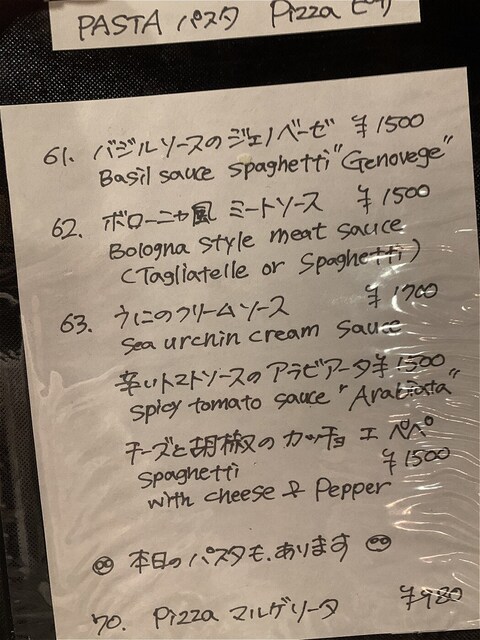 PASTA パスタ Pizza ピザ
61. バジルソースのジェノベーゼ ¥1500
Basil sauce spaghetti "Genovege"
62. ボローニャ風 ミートソース ¥1500
Bologna style meat sauce
(Tagliatelle or Spaghetti)
63. うにのクリームソース ¥1700
sea urchin cream sauce
辛いトマトソースのアラビアータ ¥1500
spicy tomato sauce "Arabiata"
チーズと胡椒のカッチョ エ ペペ
spaghetti ¥1500
with cheese & Pepper
本日のパスタも、あります
70. Pizza マルゲリータ ¥980